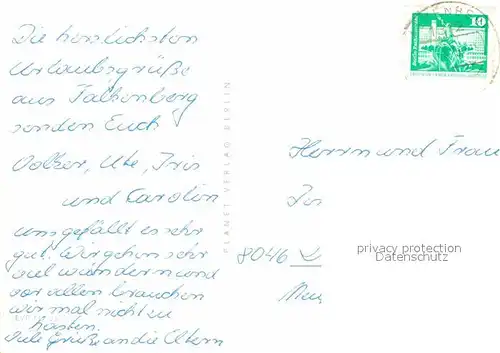 Die herzlichsten
Urlaubsgrüße
aus Falkenberg
senden Euch
Volker, Ute, Iris
und Carolin
uns gefällt es sehr
gut. Wir gehen sehr
viel wandern und
vor allen brauchen
wir mal nicht zu
hasten.
Viele Grüße an die Eltern
PLANET VERLAG BERLIN
10
Herrn und Frau
8046
privacy protection
Datenschutz